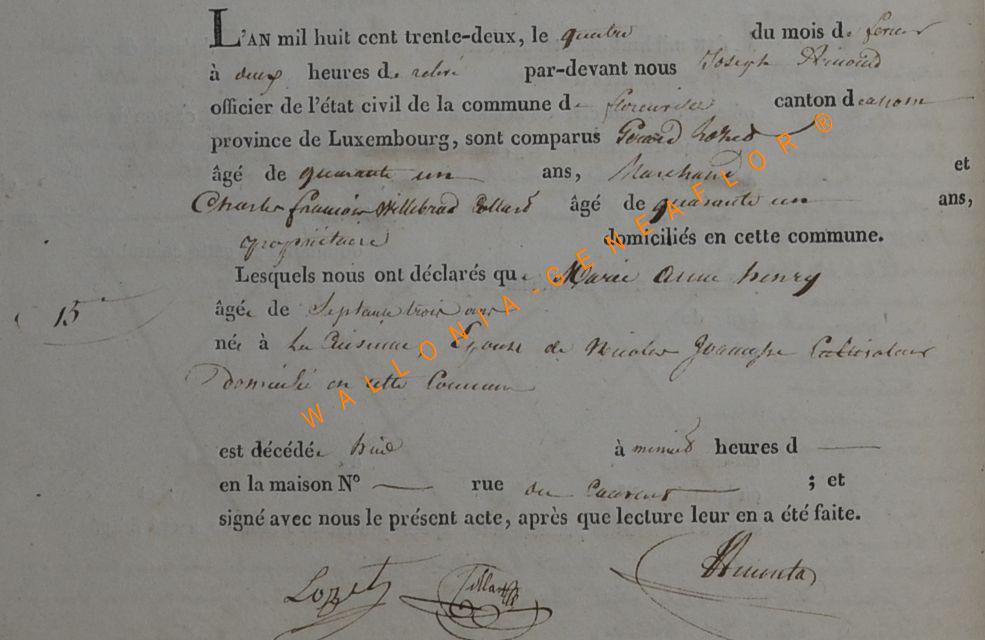 L'AN mil huit cent trente-deux, le quatre du mois de
à deux heures de par-devant nous Joseph
officier de l'état civil de la commune de canton d
province de Luxembourg, sont comparus Gérard
âgé de quarante un ans, Marchand et
Charles françois Willebrad Collard âgé de quarante un ans,
propriétaire domiciliés en cette commune.
Lesquels nous ont déclarés que Marie Anne henry
âgée de Septante trois ans
15
née à La Cuisine, Epouse de Nicolas Cultivateur
domicilié en cette Commune
est décédée hier à minuit heures d
en la maison N° rue du ; et
signé avec nous le présent acte, après que lecture leur en a été faite.
Lozet Collard
WALLONIA-GENEAFLOR ®